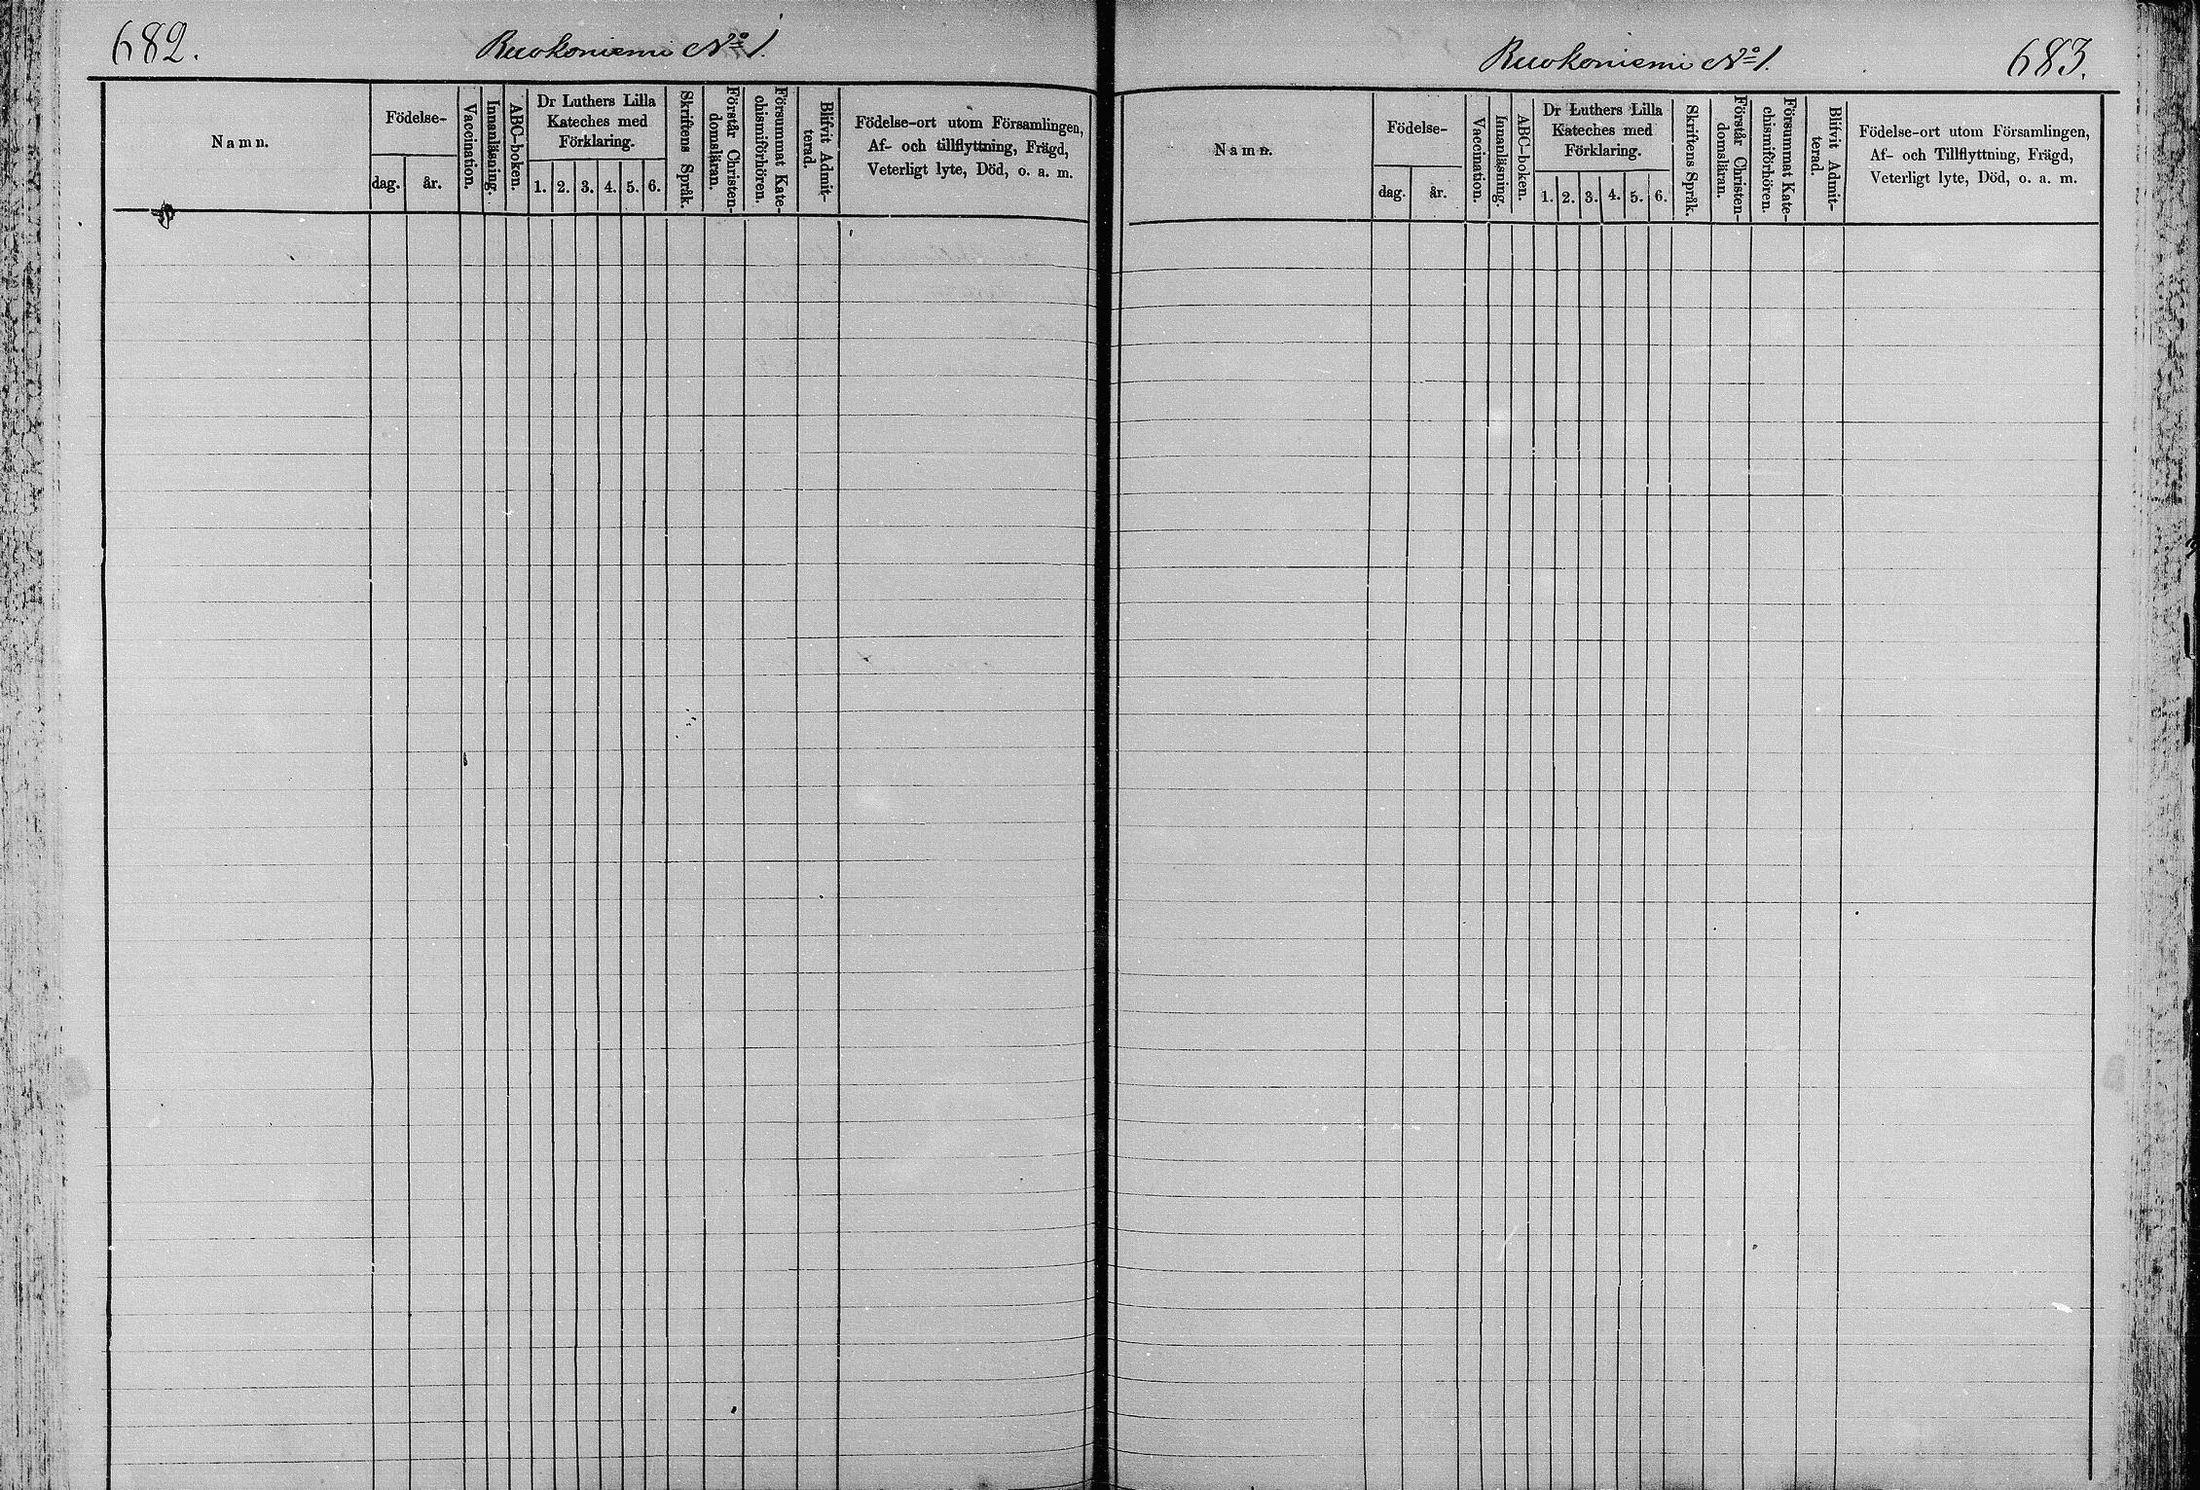 682.
Ruokoniemi No 1.
Namn.
Födelse-
dag.
år.
Vaccination.
Innanläsning.
ABC-boken.
Dr Luthers Lilla
Kateches med
Förklaring.
1. 2. 3. 4. 5. 6.
Skriftens Språk.
Förstår Christen-
domsläran.
Försummat Kate-
chismiförhören.
Blifvit Admit-
terad.
Födelse-ort utom Församlingen,
Af- och tillflyttning, Frägd,
Veterligt lyte, Död, o. a. m.
Ruokoniemi No 1.
683.
Namn.
Födelse-
dag.
år.
Vaccination.
Innanläsning.
ABC-boken.
Dr Luthers Lilla
Kateches med
Förklaring.
1. 2. 3. 4. 5. 6.
Skriftens Språk.
Förstår Christen-
domsläran.
Försummat Kate-
chismiförhören.
Blifvit Admit-
terad.
Födelse-ort utom Församlingen,
Af- och Tillflyttning, Frägd,
Veterligt lyte, Död, o. a. m.